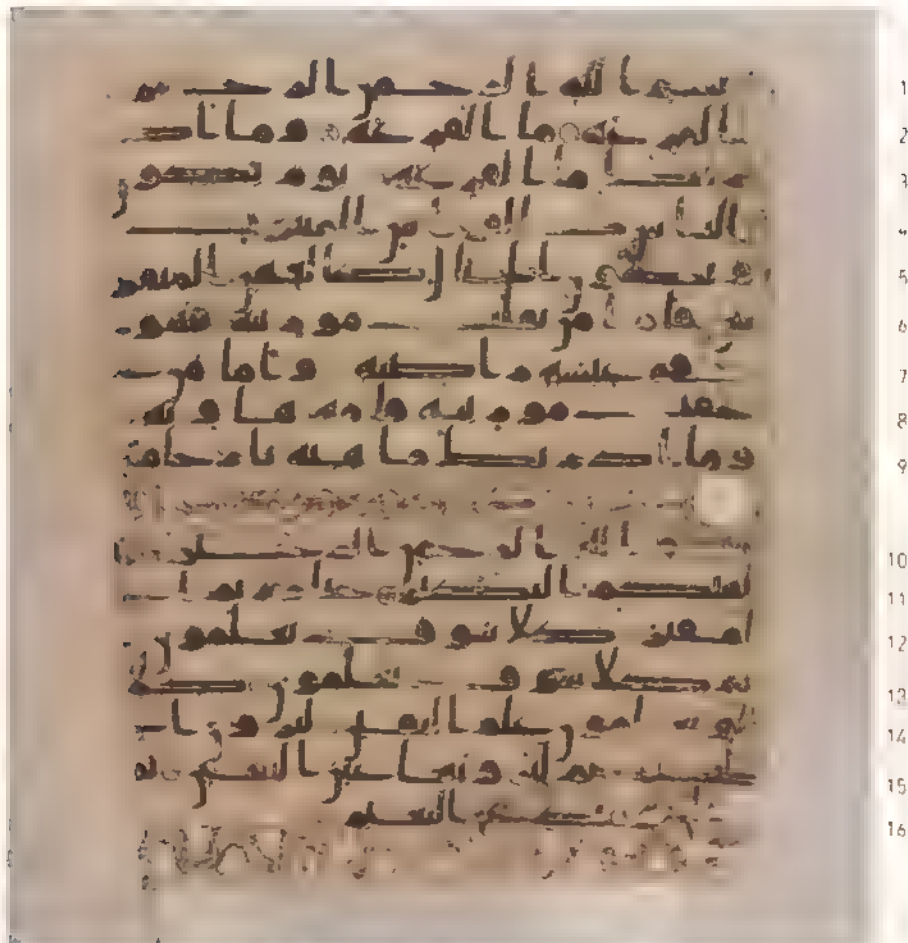 بسم الله الرحمن الرحيم 1
القرعة ما القرعة وما اد 2
ريك ما القرعة يوم يكون 3
الناس كالفراش المبثو 4
ث وتكون الجبال كالعهن المنفو 5
ش فاما من ثقلت موزينه فهو 6
في عيشة راضية واما من 7
خفت موزينه فامه هاوية 8
وما ادريك ما هيه نار حامية 9
بسم الله الرحمن الرحيم 10
الهيكم التكاثر حتى زرتم ا 11
لمقبر كلا سوف تعلمون 12
ثم كلا سوف تعلمون كلا 13
لو تعلمون علم اليقين لترون ا 14
لجحيم ثم لترونها عين اليقين ثم 15
لتسئلن يومئذ عن النعيم 16